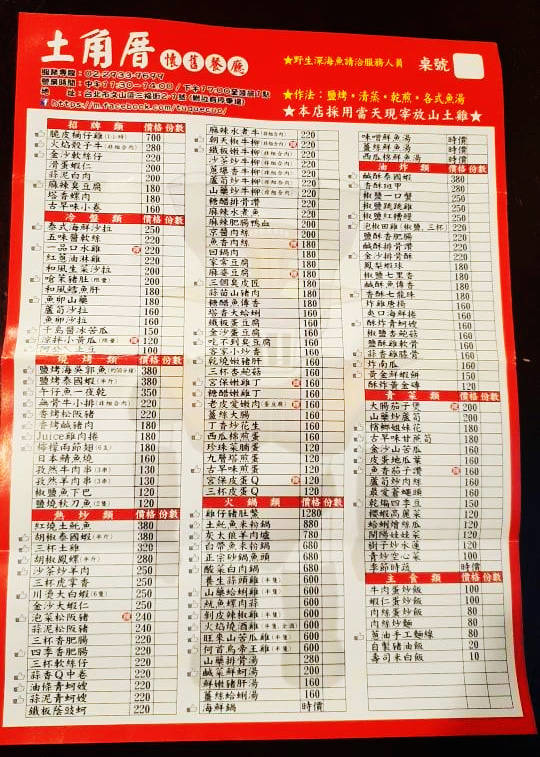 土角厝 懷舊餐廳
服務專線：02-2933-9644
營業時間：中午11:30~14:00 / 下午17:00至凌晨1點
https://m.facebook.com/tuquecuo/
★野生深海魚請洽服務人員
桌號
★作法：鹽烤・清蒸・乾煎・各式魚湯
★本店採用當天現宰放山土雞★
招牌類 價格 份數
脆皮桶仔雞 700
火焰骰子牛 450
金沙軟絲仔 220
滑蛋蝦仁 200
蒜泥白肉 200
麻辣臭豆腐 180
塔香螺肉 180
古早味小卷 160
冷盤類 價格 份數
泰式海鮮沙拉 250
五味醬軟絲 220
一品口水雞 220
紅蔥油淋雞 220
和風生菜沙拉 200
嗆菜豬肚 200
和風鱈魚肝 180
魚卵山藥 180
蘆筍沙拉 160
魚卵沙拉 160
千島醬冰苦瓜 150
涼拌小黃瓜 120
燒烤類 價格 份數
鹽烤海吳郭魚 380
鹽烤泰國蝦 380
午仔魚一夜乾 350
無骨牛小排 220
香烤松阪豬 220
香烤鹹豬肉 180
Juice雞肉捲 180
檸檬雨節翅 160
日本鯖魚燒 160
孜然牛肉串 130
孜然羊肉串 130
椒鹽魚下巴 120
鹽燒秋刀魚 120
熱炒類 價格 份數
紅燒土魠魚 380
胡椒泰國蝦 380
三杯土雞 320
胡椒鳳螺 280
沙茶炒羊肉 250
三杯虎掌香 250
川燙大白蝦 250
金沙大蝦仁 250
泡菜松阪豬 240
蒜泥松阪豬 240
三杯香肥腸 220
四季香肥腸 220
三杯軟絲仔 220
蒜香Q中卷 220
油條青蚵嫂 220
蒜泥青蚵嫂 220
鐵板蔭豉蚵 220
麻辣水煮牛 220
朝天椒牛柳 220
鐵板嫩牛柳 220
沙茶炒牛柳 220
蔥爆香牛柳 220
蘆筍炒牛柳 220
山藥炒牛柳 220
糖醋排骨讚 220
麻辣水煮魚 220
麻辣肥腸鴨血 200
京醬肉絲 200
魚香肉絲 200
回鍋肉 180
家常豆腐 180
麻婆豆腐 180
三個臭皮匠 180
蒜苗山豬肉 180
糖醋魚傳香 180
塔香大蛤蜊 160
鐵板蛋豆腐 160
金沙蛋豆腐 160
吃不到臭豆腐 160
客家小炒香 160
乾燒嫩豬肝 160
三杯杏鮑菇 160
宮保嫩雞丁 160
糖醋嫩雞丁 160
老皮愛嫩肉 160
薑絲大腸 160
丁香炒花生 160
西瓜綿煎蛋 160
珍珠菜脯蛋 120
九層塔煎蛋 120
古早味煎蛋 120
宮保皮蛋Q 120
三杯皮蛋Q 120
火鍋類 價格 份數
雞仔豬肚鱉 1280
土魠魚米粉鍋 880
灰太狼羊肉爐 780
白帶魚米粉鍋 680
正宗砂鍋魚頭 680
酸菜白肉鍋 680
養生蒜頭雞 600
山藥蛤蜊雞 600
魷魚螺肉蒜 600
剝皮辣椒雞 600
火焰燒酒雞 600
旺來山苦瓜雞 600
何首烏帝王雞 600
山藥排骨湯 200
鹹菜鮮蚵湯 200
鮮嫩豬肝湯 160
薑絲蛤蜊湯 160
海鮮鍋 時價
味噌鮮魚湯 時價
薑絲鮮魚湯 時價
西瓜綿鮮魚湯 時價
油炸類 價格 份數
鹹酥泰國蝦 380
香酥斑甲 280
椒鹽一口蟹 250
椒鹽跳跳雞 250
椒鹽紅糟鰻 250
泡椒田雞 220
鹽酥香肥腸 220
鹹酥排骨讚 220
金沙排骨酥 220
鳳梨蝦球 180
椒鹽七里香 180
鹹酥魚傳香 180
香酥七龍珠 180
炸龍鱗 180
爽口海鮮捲 160
酥炸青蚵嫂 160
椒鹽杏鮑菇 160
鹽酥鮮蘑菇 160
蒜香雞膝骨 160
炸南瓜 160
黃金鮮蝦餅 150
酥炸黃金磚 120
青菜類 價格 份數
大腸茄子煲 200
山藥炒蘆筍 200
檳榔姐妹花 180
古早味甘蔗筍 180
金沙山苦瓜 160
皮蛋地瓜葉 160
魚香茄子讚 160
蘆筍炒肉絲 160
最愛蒼蠅頭 160
乾煸四季豆 150
櫻蝦高麗菜 150
蛤蜊燴絲瓜 120
開陽娃娃菜 120
樹子炒水蓮 120
青炒空心菜 100
季節時蔬 時價
主食類 價格 份數
牛肉蛋炒飯 100
蝦仁蛋炒飯 100
肉絲蛋炒飯 80
肉絲炒麵 80
蔥油手工麵線 80
自製豬油飯 20
壽司米白飯 10